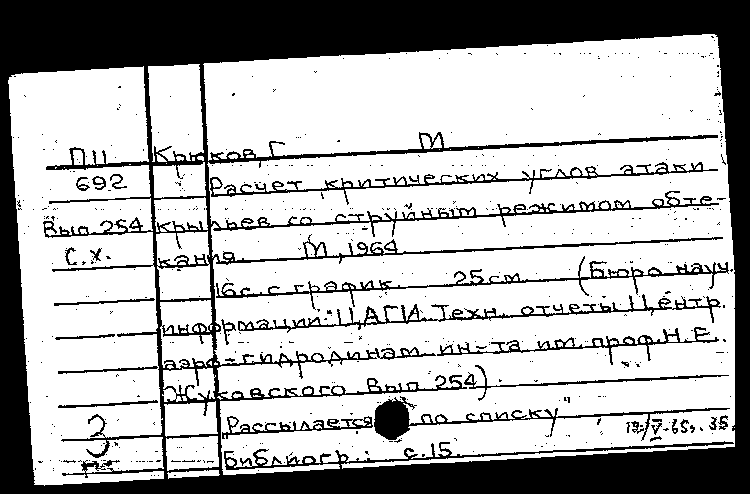 П11 Крюков, Г М
692 Расчет критических углов атаки
Вып. 254 крыльев со струйным режимом обте-
С.х. кания. М, 1964
16 с. с график. 25 см (Бюро науч.
информации ЦАГИ. Техн. отчеты Центр.
аэро-гидродинам ин-та им. проф. Н.Е.
Жуковского Вып 254).
"Рассылается по списку"
3 Библиогр.: с. 15.